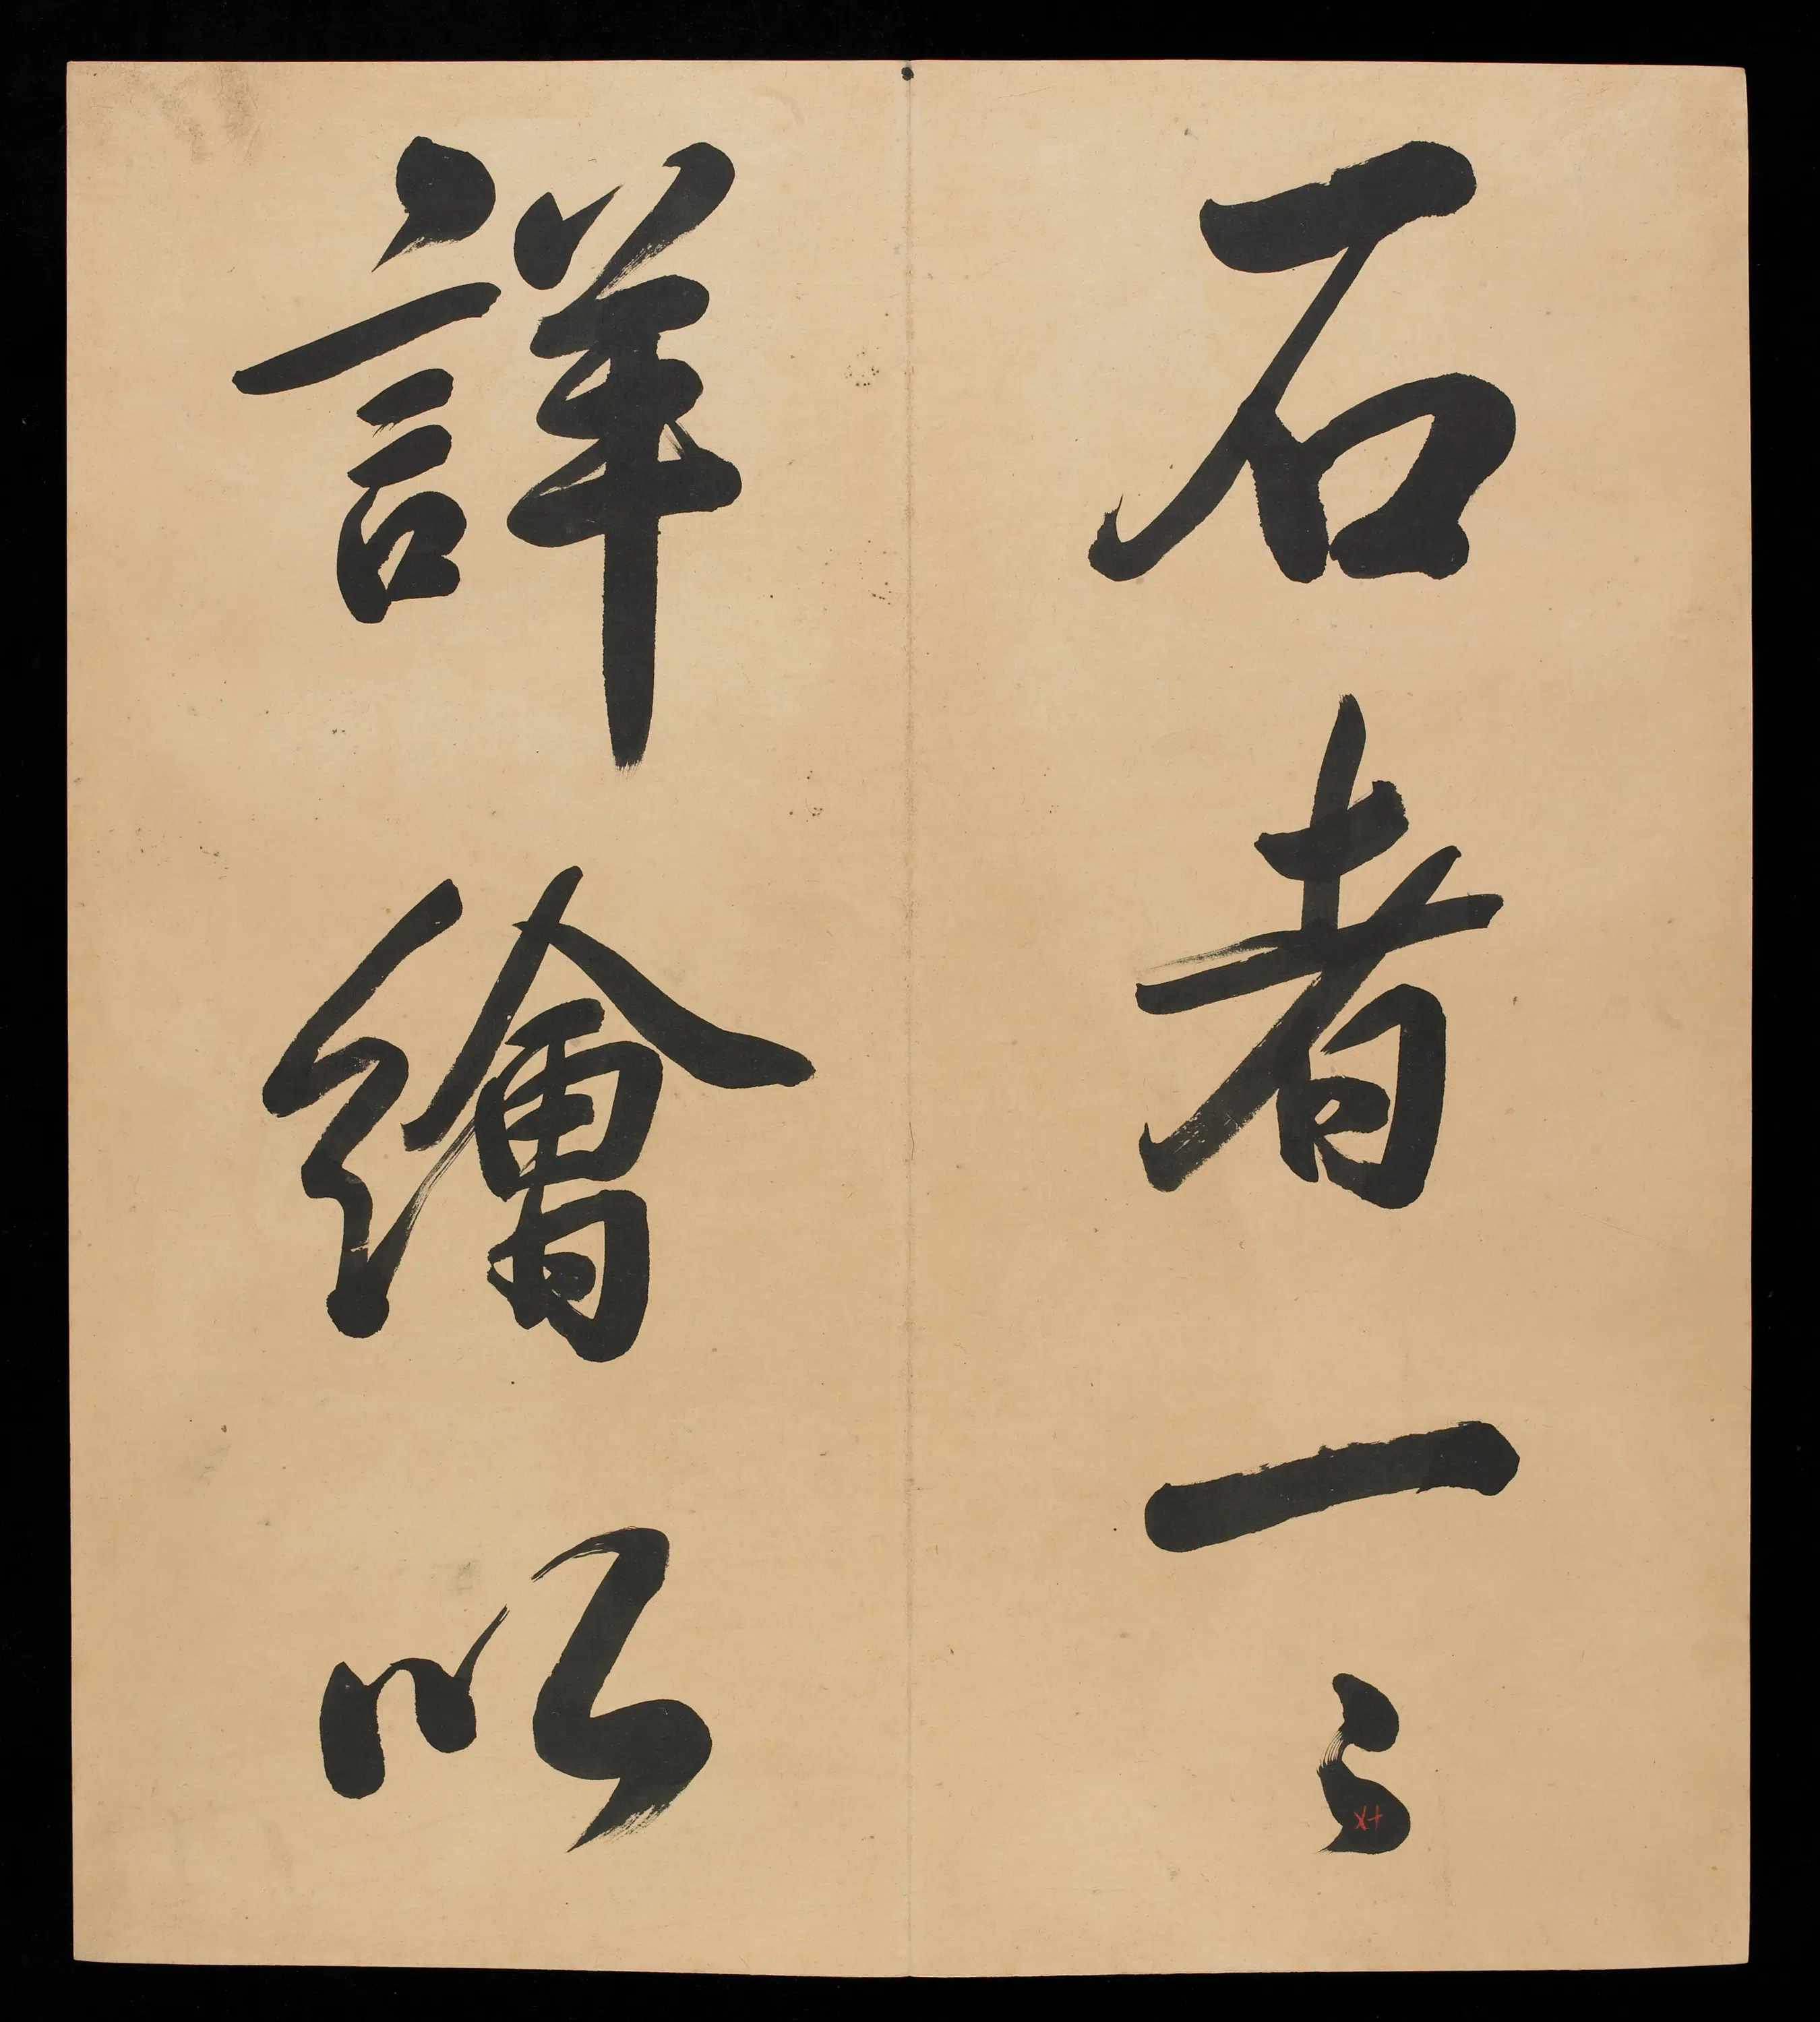 石者一〻
詳繪以